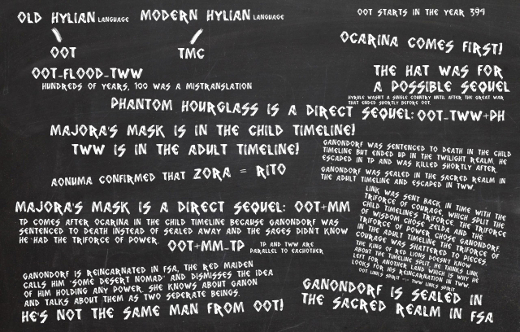 OLD HYLIAN LANGUAGE MODERN HYLIAN LANGUAGE
OOT TMC
OOT STARTS IN THE YEAR 399
OCARINA COMES FIRST!
OOT-FLOOD-TWW
HUNDREDS OF YEARS, 100 WAS A MISTRANSLATION
THE HAT WAS FOR
A POSSIBLE SEQUEL
HYRULE WASN'T A SINGLE COUNTRY UNTIL AFTER THE GREAT WAR
THAT ENDED SHORTLY BEFORE OOT
PHANTOM HOURGLASS IS A DIRECT SEQUEL: OOT-TWW+PH
MAJORA'S MASK IS IN THE CHILD TIMELINE!
TWW IS IN THE ADULT TIMELINE!
GANONDORF WAS SENTENCED TO DEATH IN THE CHILD
TIMELINE BUT ENDED UP IN THE TWILIGHT REALM. HE
ESCAPED IN TP AND WAS KILLED SHORTLY AFTER
GANONDORF WAS SEALED IN THE SACRED REALM IN
THE ADULT TIMELINE AND ESCAPED IN TWW
AONUMA CONFIRMED THAT ZORA = RITO
MAJORA'S MASK IS A DIRECT SEQUEL: OOT+MM
TP COMES AFTER OCARINA IN THE CHILD TIMELINE BECAUSE GANONDORF WAS
SENTENCED TO DEATH INSTEAD OF SEALED AWAY AND THE SAGES DIDN'T KNOW
HE HAD THE TRIFORCE OF POWER
OOT+MM-TP
TP AND TWW ARE
PARALLEL TO EACHOTHER
LINK WAS SENT BACK IN TIME WITH THE
TRIFORCE OF COURAGE, WHICH SPLIT THE
CHILD TIMELINE'S TRIFORCE. THE TRIFORCE
OF WISDOM CHOSE ZELDA AND THE
TRIFORCE OF POWER CHOSE GANONDORF.
IN THE ADULT TIMELINE THE TRIFORCE OF
COURAGE WAS SHATTERED TO PIECES
THE KING OF RED LIONS DOESN'T KNOW
ABOUT THE TIMELINE SPLIT. HE THINKS LINK
LEFT FOR ANOTHER LAND
GANONDORF IS REINCARNATED IN FSA, THE RED MAIDEN
CALLS HIM "SOME DESERT NOMAD" AND DISMISSES THE IDEA
OF HIM HOLDING ANY POWER. SHE KNOWS ABOUT GANON
AND TALKS ABOUT THEM AS TWO SEPERATE BEINGS.
HE'S NOT THE SAME MAN FROM OOT!
GANONDORF IS SEALED IN
THE SACRED REALM IN FSA